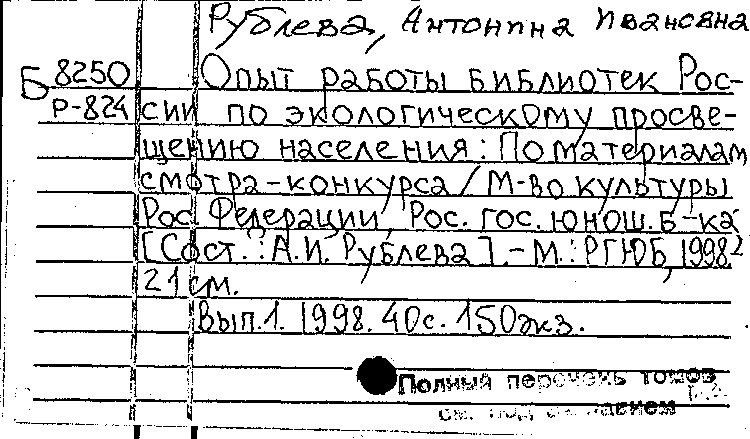 Рублева, Антонина Ивановна
Б 8250 Опыт работы библиотек Рос-
Р-824 сии по экологическому просве-
щению населения: По материалам
смотра-конкурса / М-во культуры
Рос. Федерации, Рос. гос. юнош. б-ка
[Сост.: А.И. Рублева]. - М.: РГЮБ, 1998-
21 см.
Вып.1. 1998. 40с. 150экз.
Полный перечень томов
см. под